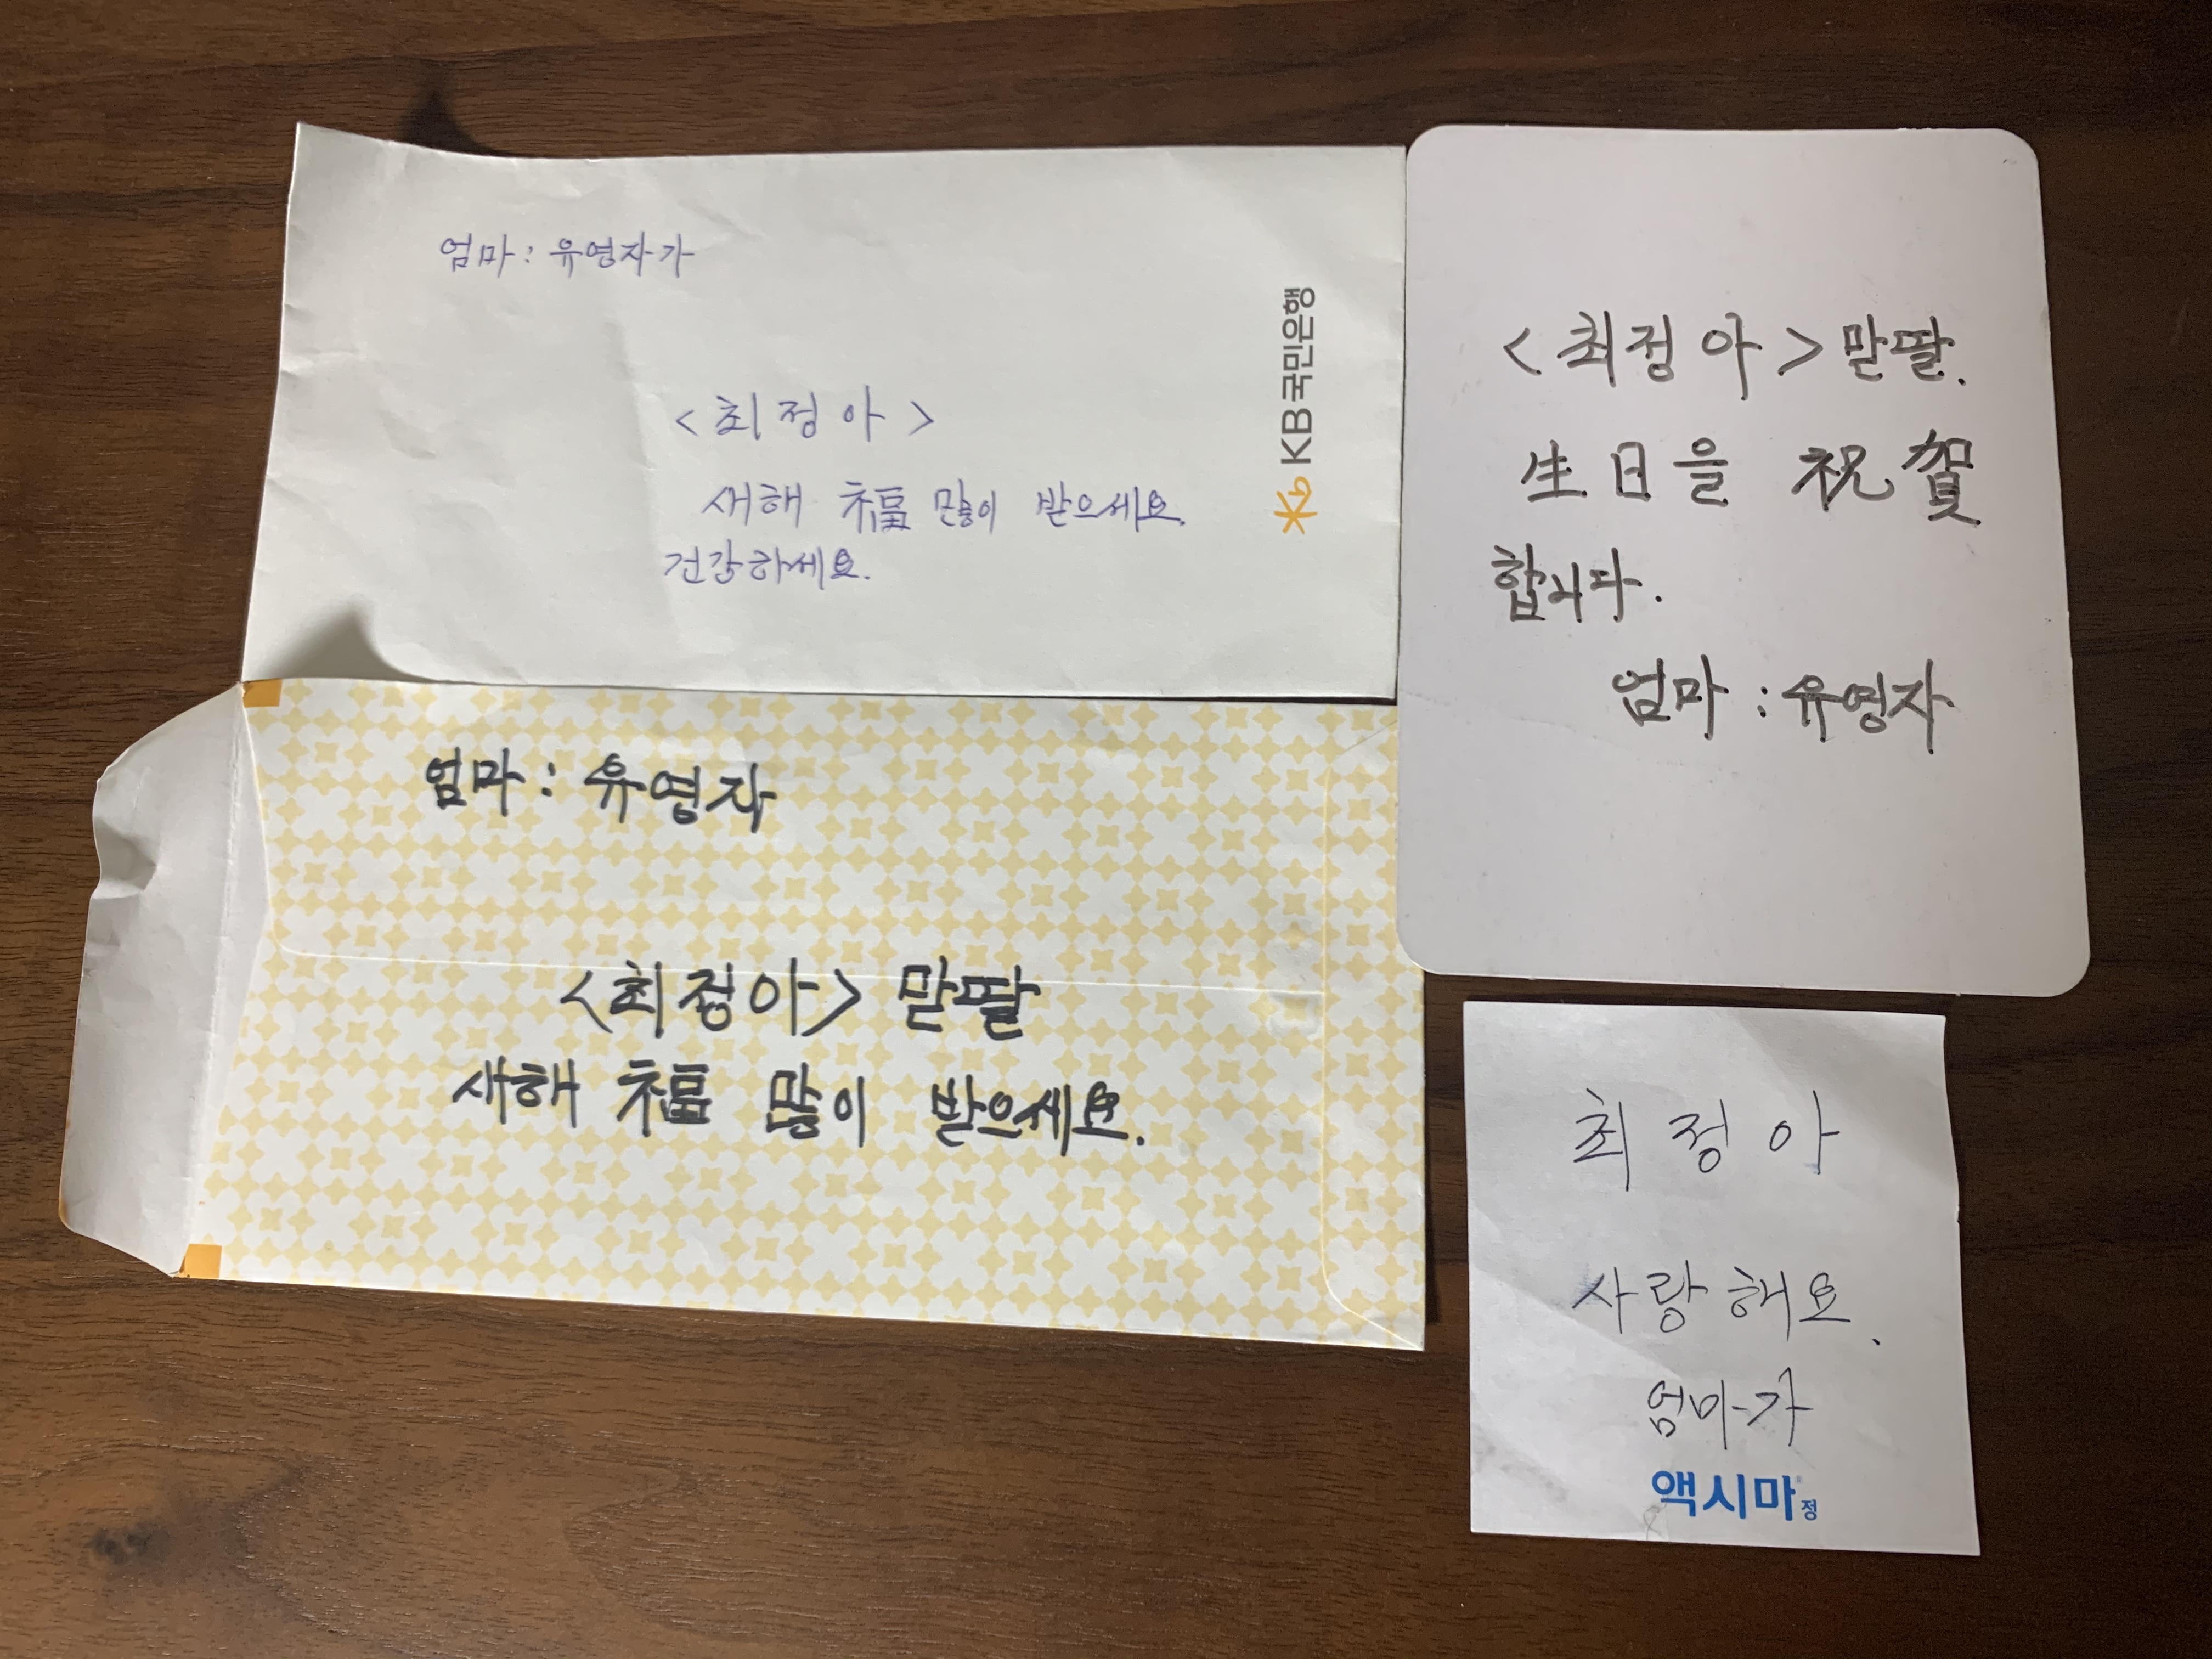 엄마: 유영자가
<최정아>
새해 福 많이 받으세요.
건강하세요.
KB국민은행
<최정아> 맏딸.
生日을 祝賀
합니다.
엄마: 유영자
엄마: 유영자
<최정아> 맏딸
새해 福 많이 받으세요.
최정아
사랑해요.
엄마가
액시마정